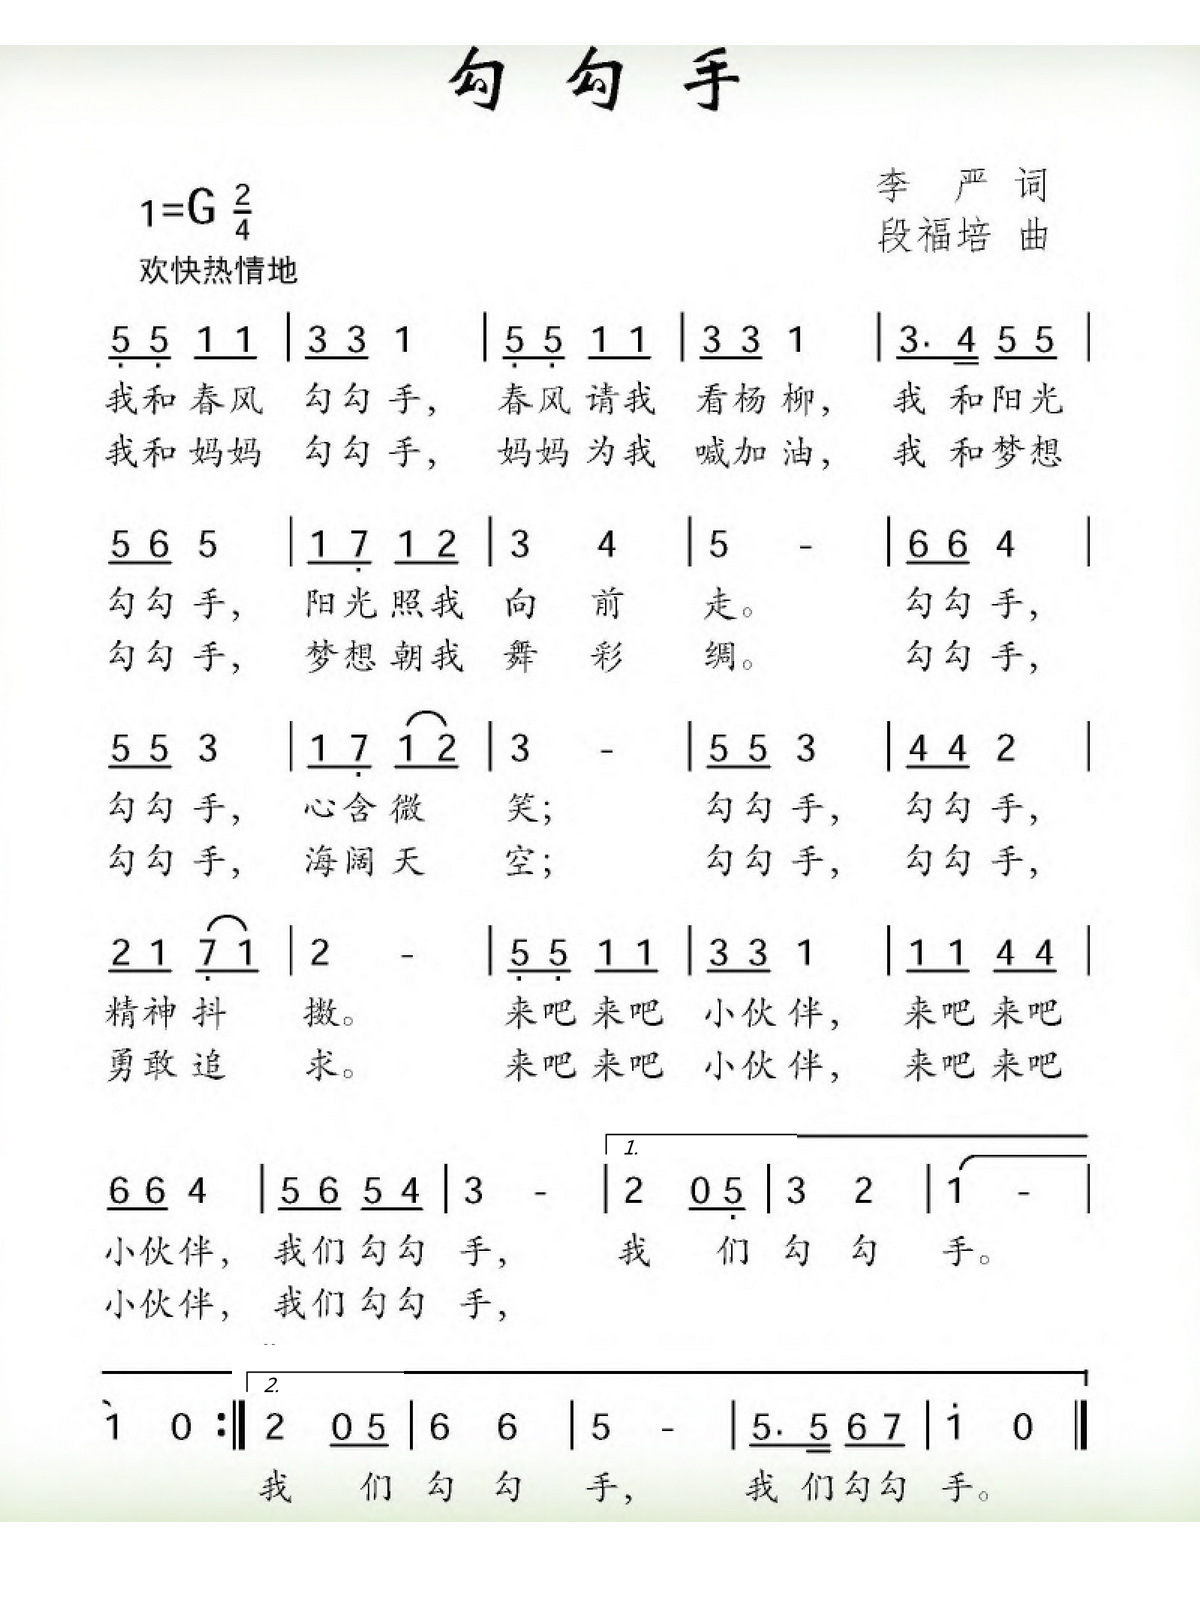 勾 勾 手
李 严 词
1=G 2/4
段福培 曲
欢快热情地
5̣ 5̣ 1 1 | 3 3 1 | 5̣ 5̣ 1 1 | 3 3 1 | 3. 4 5 5 |
我和 春风 勾勾 手, 春风 请我 看杨 柳, 我 和阳光
我和 妈妈 勾勾 手, 妈妈 为我 喊加 油, 我 和梦想
5 6 5 | 1 7̣ 1 2 | 3 4 | 5 - | 6 6 4 |
勾勾 手, 阳光 照我 向 前 走。 勾勾 手,
勾勾 手, 梦想 朝我 舞 彩 绸。 勾勾 手,
5 5 3 | 1 7̣ 1 2 | 3 - | 5 5 3 | 4 4 2 |
勾勾 手, 心含 微 笑; 勾勾 手, 勾勾 手,
勾勾 手, 海阔 天 空; 勾勾 手, 勾勾 手,
2 1 7̣ 1 | 2 - | 5̣ 5̣ 1 1 | 3 3 1 | 1 1 4 4 |
精神 抖 擞。 来吧 来吧 小伙 伴, 来吧 来吧
勇敢 追 求。 来吧 来吧 小伙 伴, 来吧 来吧
1.
6 6 4 | 5 6 5 4 | 3 - | 2 0 5̣ | 3 2 | 1 - |
小伙伴, 我们 勾勾 手, 我 们 勾 勾 手。
小伙伴, 我们 勾勾 手,
2.
1 0 :‖ 2 0 5 | 6 6 | 5 - | 5. 5 6 7 | 1̇ 0 ‖
我 们 勾 勾 手, 我 们勾勾 手。